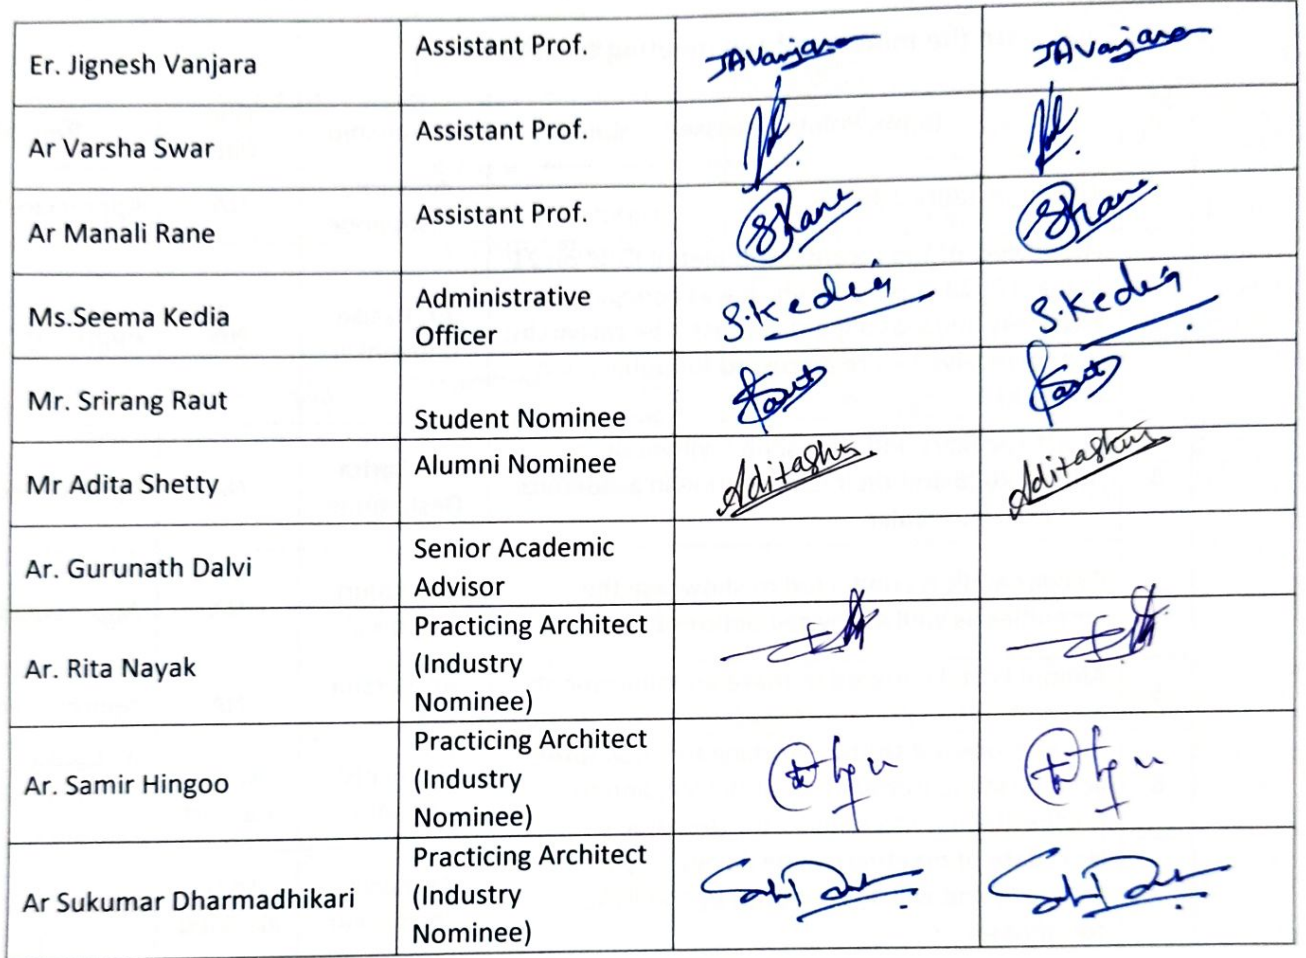 Er. Jignesh Vanjara
Assistant Prof.
JAVanjara
JAVanjara
Ar Varsha Swar
Assistant Prof.
Ar Manali Rane
Assistant Prof.
Rane
Rane
Ms.Seema Kedia
Administrative
Officer
S.Kedia
S.Kedia
Mr. Srirang Raut
Student Nominee
Raut
Raut
Mr Adita Shetty
Alumni Nominee
Ar. Gurunath Dalvi
Senior Academic
Advisor
Ar. Rita Nayak
Practicing Architect
(Industry
Nominee)
Ar. Samir Hingoo
Practicing Architect
(Industry
Nominee)
Ar Sukumar Dharmadhikari
Practicing Architect
(Industry
Nominee)